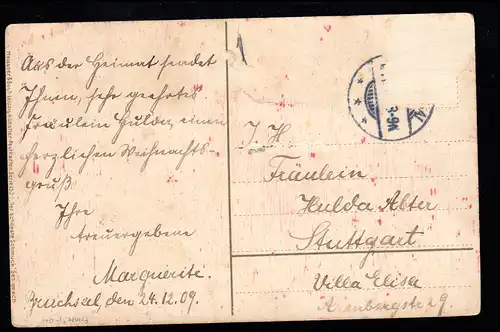 Aus der Heimat sendet
Ihnen, sehr geehrtes
Fräulein Hulda, einen
herzlichen Weihnachts-
gruß
Ihre
treuergebene
Marguerite.
Bruchsal, den 24.12.09.
I. H.
Fräulein
Hulda Alter
Stuttgart
Villa Elisa